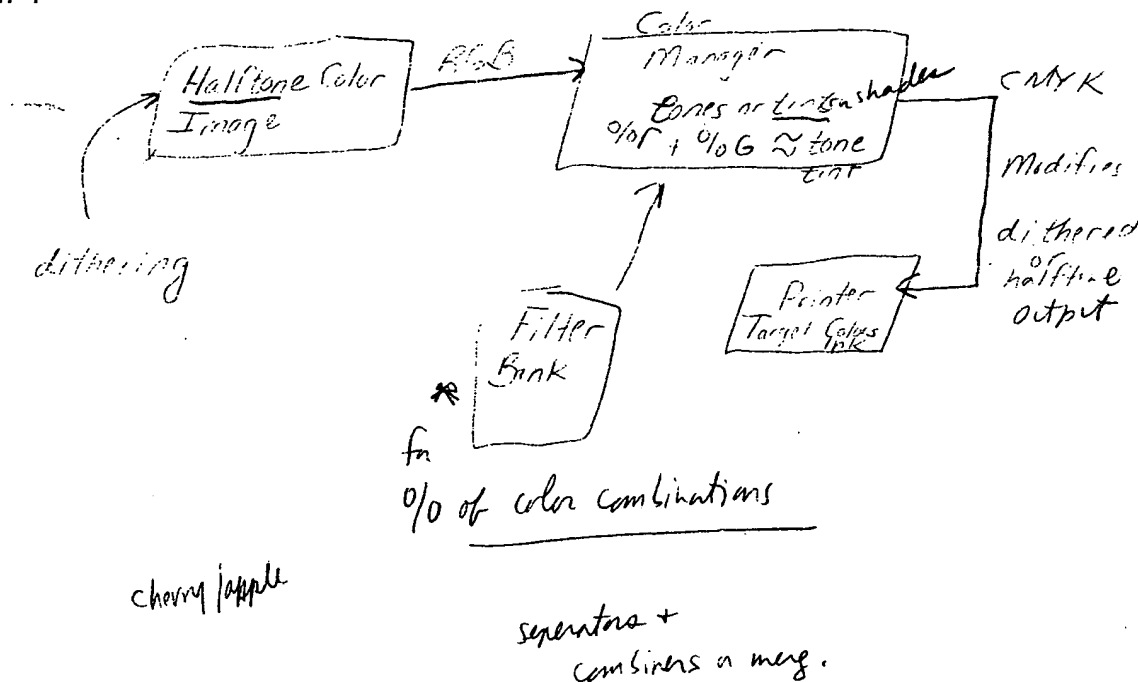 Halftone Color
Image
RGB
Color
Manager
tones or tints or shades
%r + %G ≈ tone
tint
CMYK
Modifies
dithered
or
halftone
output
dithering
Filter
Bank
Printer
Target Colors
Ink
*
for
% of color combinations
cherry/apple
seperators +
combiners or merg.